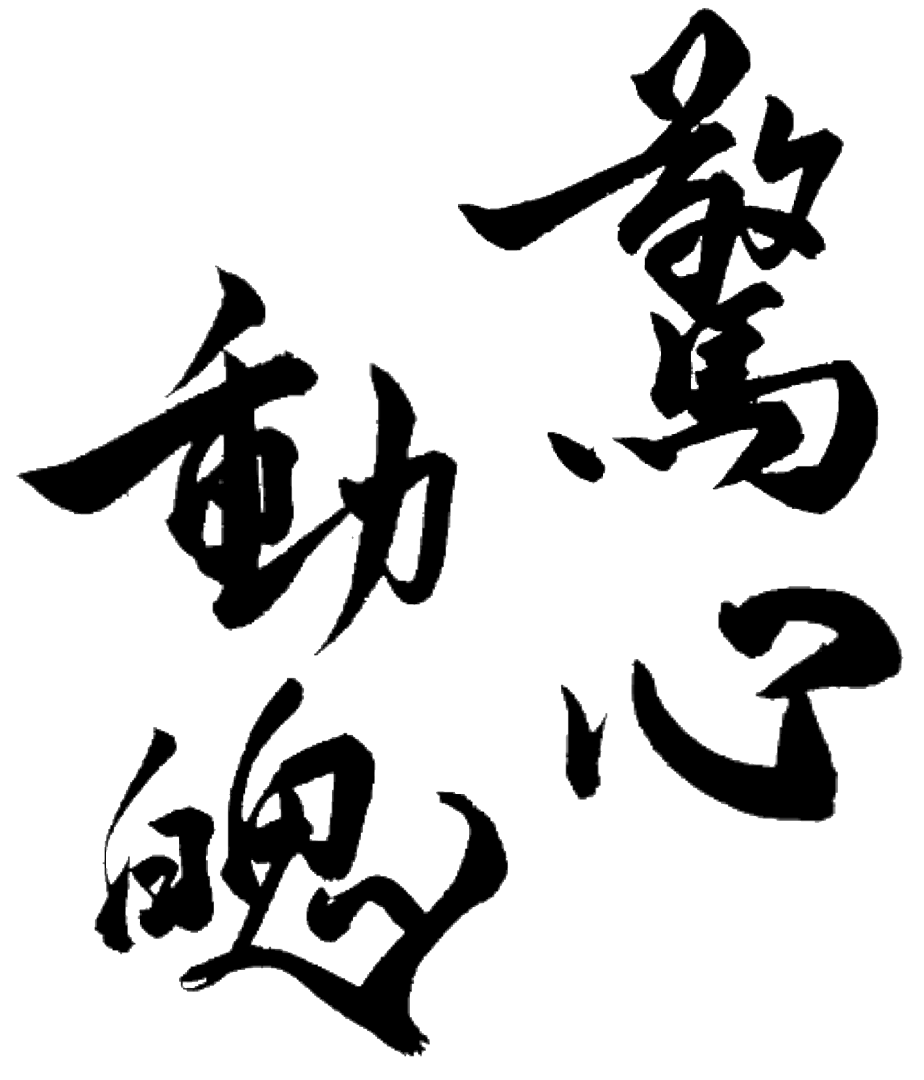 驚心
動魄